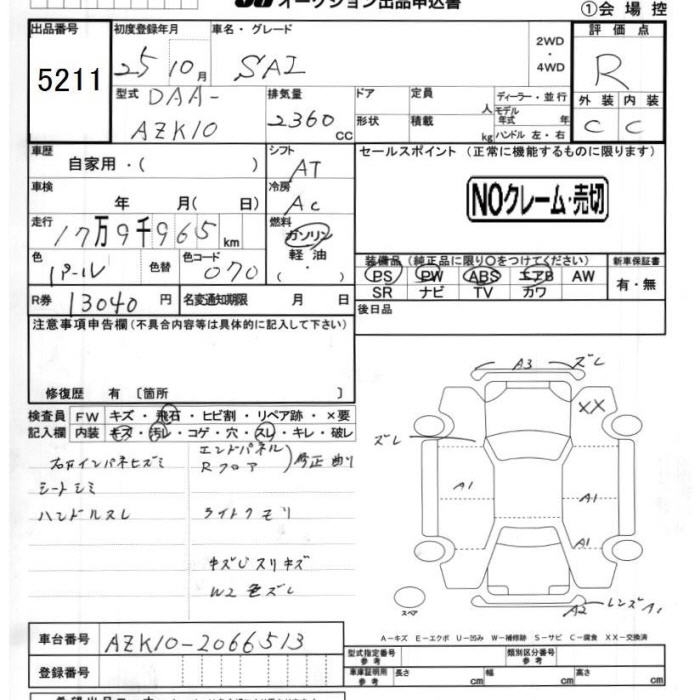 オークション出品申込書
①会場控
出品番号
5211
初度登録年月
25 10月
車名・グレード
SAI
2WD
・
4WD
評価点
R
型式
DAA-
AZK10
排気量
2360 CC
ドア
形状
定員 人
積載 kg
ディーラー・並行
モデル年式 年
ハンドル 左・右
外装 内装
C C
車歴
自家用・( )
シフト
AT
セールスポイント (正常に機能するものに限ります)
NOクレーム・売切
車検
年 月( 日)
冷房
AC
走行
17万9千965 km
燃料
ガソリン
軽油
( ・ )
色
パール
色替
色コード
070
装備品(純正品に限り○をつけてください)
PS PW ABS エアB AW
SR ナビ TV カワ
新車保証書
有・無
R券 13040 円
名変通知期限 月 日
後日品
注意事項申告欄(不具合内容等は具体的に記入して下さい)
修復歴 有 〔箇所 〕
検査員 FW キズ・飛石・ヒビ割・リペア跡・×要
記入欄 内装 キズ・汚レ・コゲ・穴・スレ・キレ・破レ
インパネヒズミ
シートシミ
ハンドルスレ
エンドパネル
Rフロア
修正 曲り
ライトクモリ
キズ スリキズ
W2 色ズレ
A3 ズレ
XX
ズレ
A1
A1
A1
スペア
A2 レンズA1
A-キズ E-エクボ U-凹み W-補修跡 S-サビ C-腐食 XX-交換済
車台番号 AZK10-2066513
登録番号
型式指定番号 参考
類別区分番号 参考
車庫証明用 参考
長さ cm
幅 cm
高さ cm